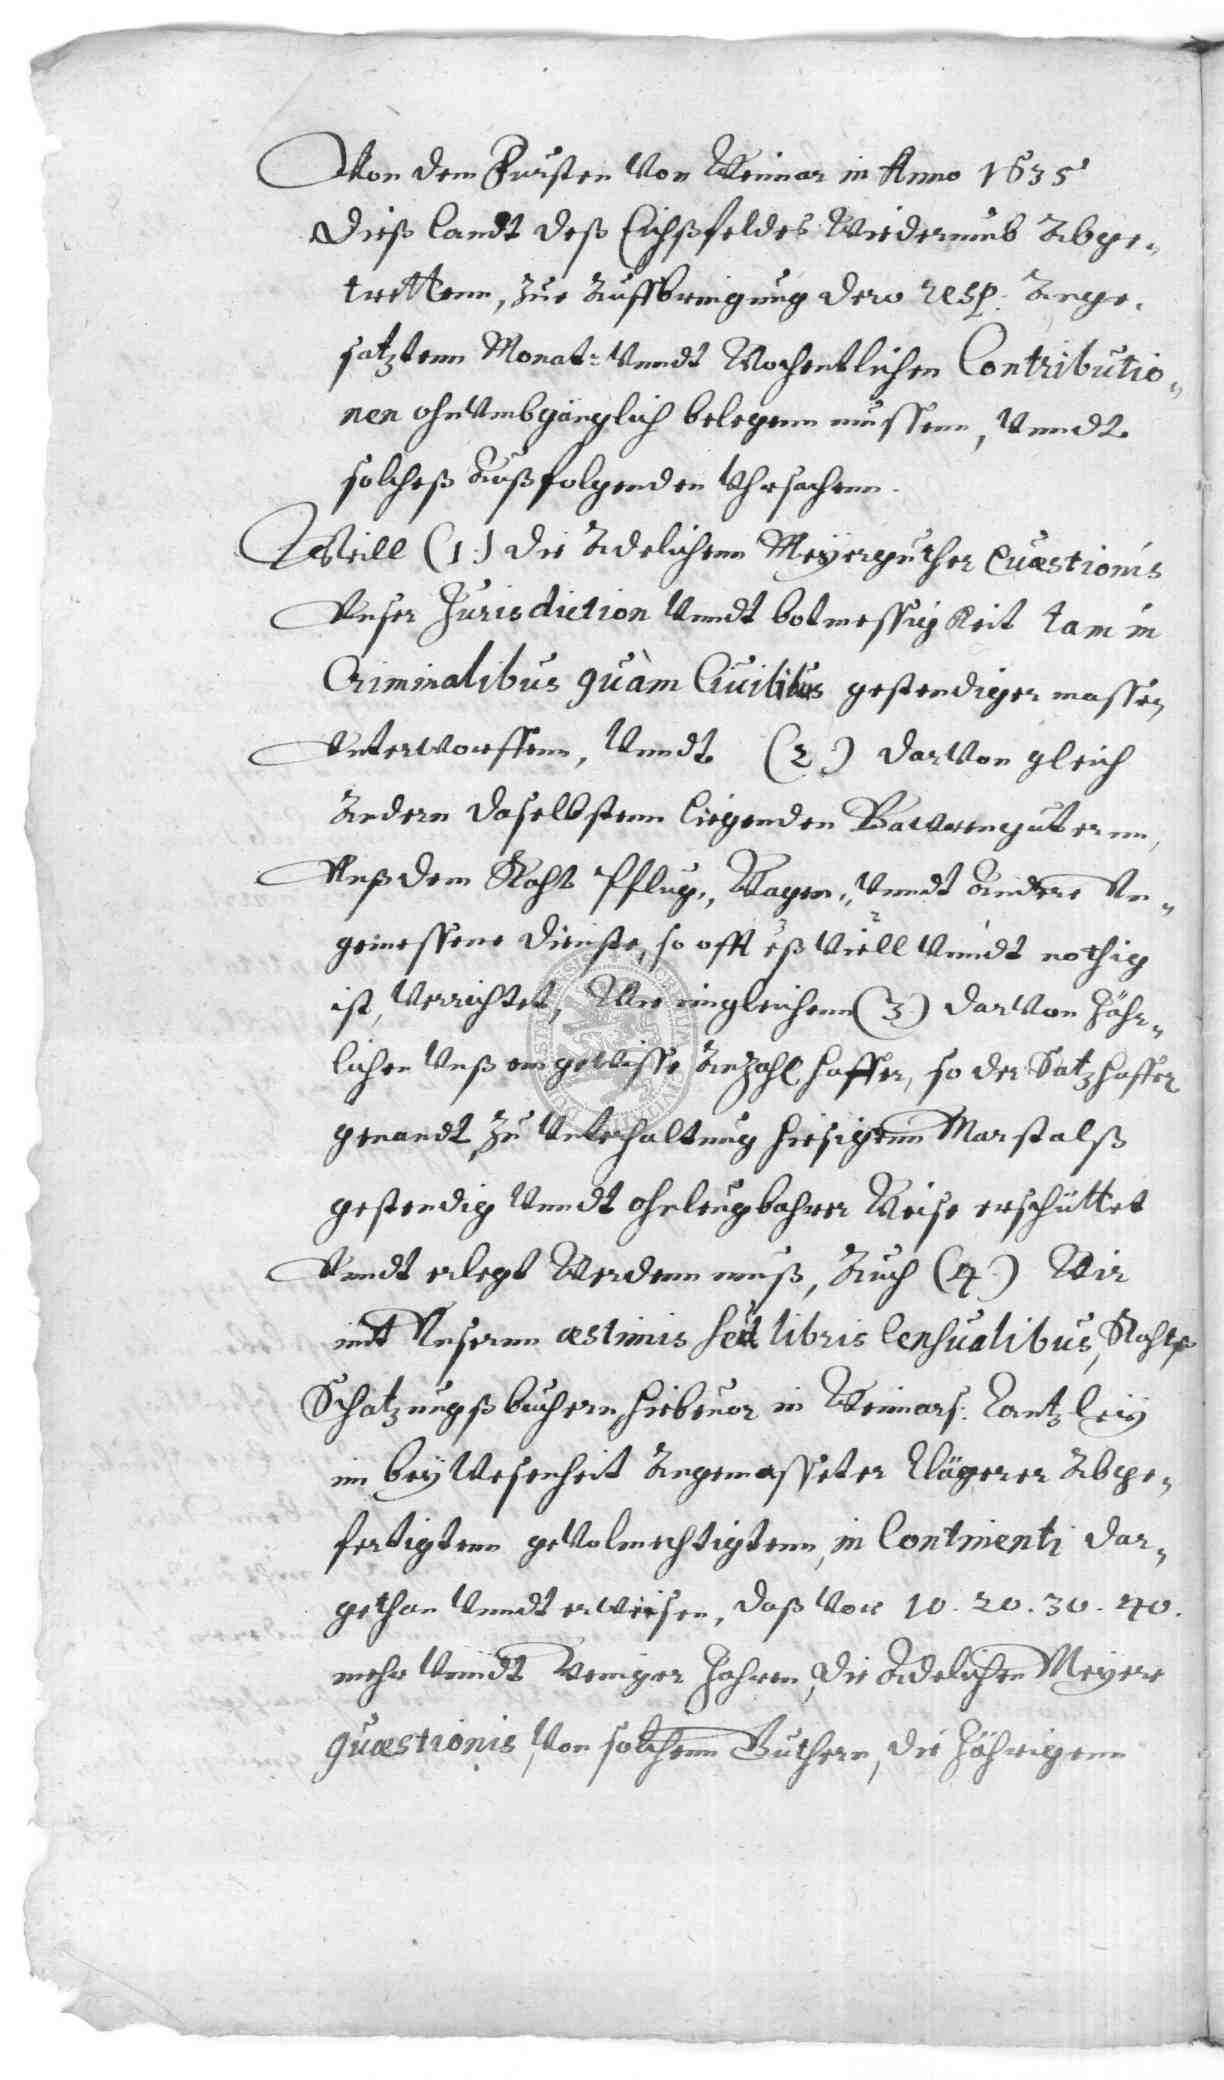 Von dem Fursten Von Weimar in Anno 1635
Dieß Landt deß Eichßfeldes Wiederumb Abge-
trettenn, Zue Auffbringung dero resp. Ange-
satztenn Monat- Vnndt Wochentlichen Contributio-
nen ohnVmbgänglich belegenn müssenn, Vnndt
solcheß Auß folgenden Vhrsachenn.
Weill (1.) die Adelichenn Meÿerguther Quæstionis
Vnser Jurisdiction Vnndt botmessigkeit tam in
Criminalibus quàm Ciuilibus gestendiger massen
Vnterworffenn, Vnndt (2.) darVon gleich
Andern daselbstenn liegenden Bawrenguternn,
Vnß dem Raht Pflug-, Wagen-, Vnndt Andere Vn-
gemessene dienste, so offt eß Viell Vnndt nothig
ist, Verrichtet, Wie inngleichenn (3.) darVon Jähr-
lichen Vnß ein geWisse Anzahl haffer, so der Satzhaffer
genandt, Zu Vnterhaltung hiesigenn Marstalß
gestendig Vnndt ohnleugbahrer Weise erschüttet
Vnndt erlegt Werdenn muß, Auch (4.) Wir
mit Vnsernn æstimis seu libris Censualibus, Rahts
Schatzungßbuchern, hiebeuor in Weimars. Cantzleÿ
in beÿWesenheit Angemasseter Clägerer Abge-
fertigtenn geVolmechtigtenn, in Continenti dar-
gethan Vnndt erwiesen, daß Von 10. 20. 30. 40.
mehr Vnndt Weniger Jahren, die Adelichen Meÿere
quæstionis, Von solchenn Guthern, die Jährigenn